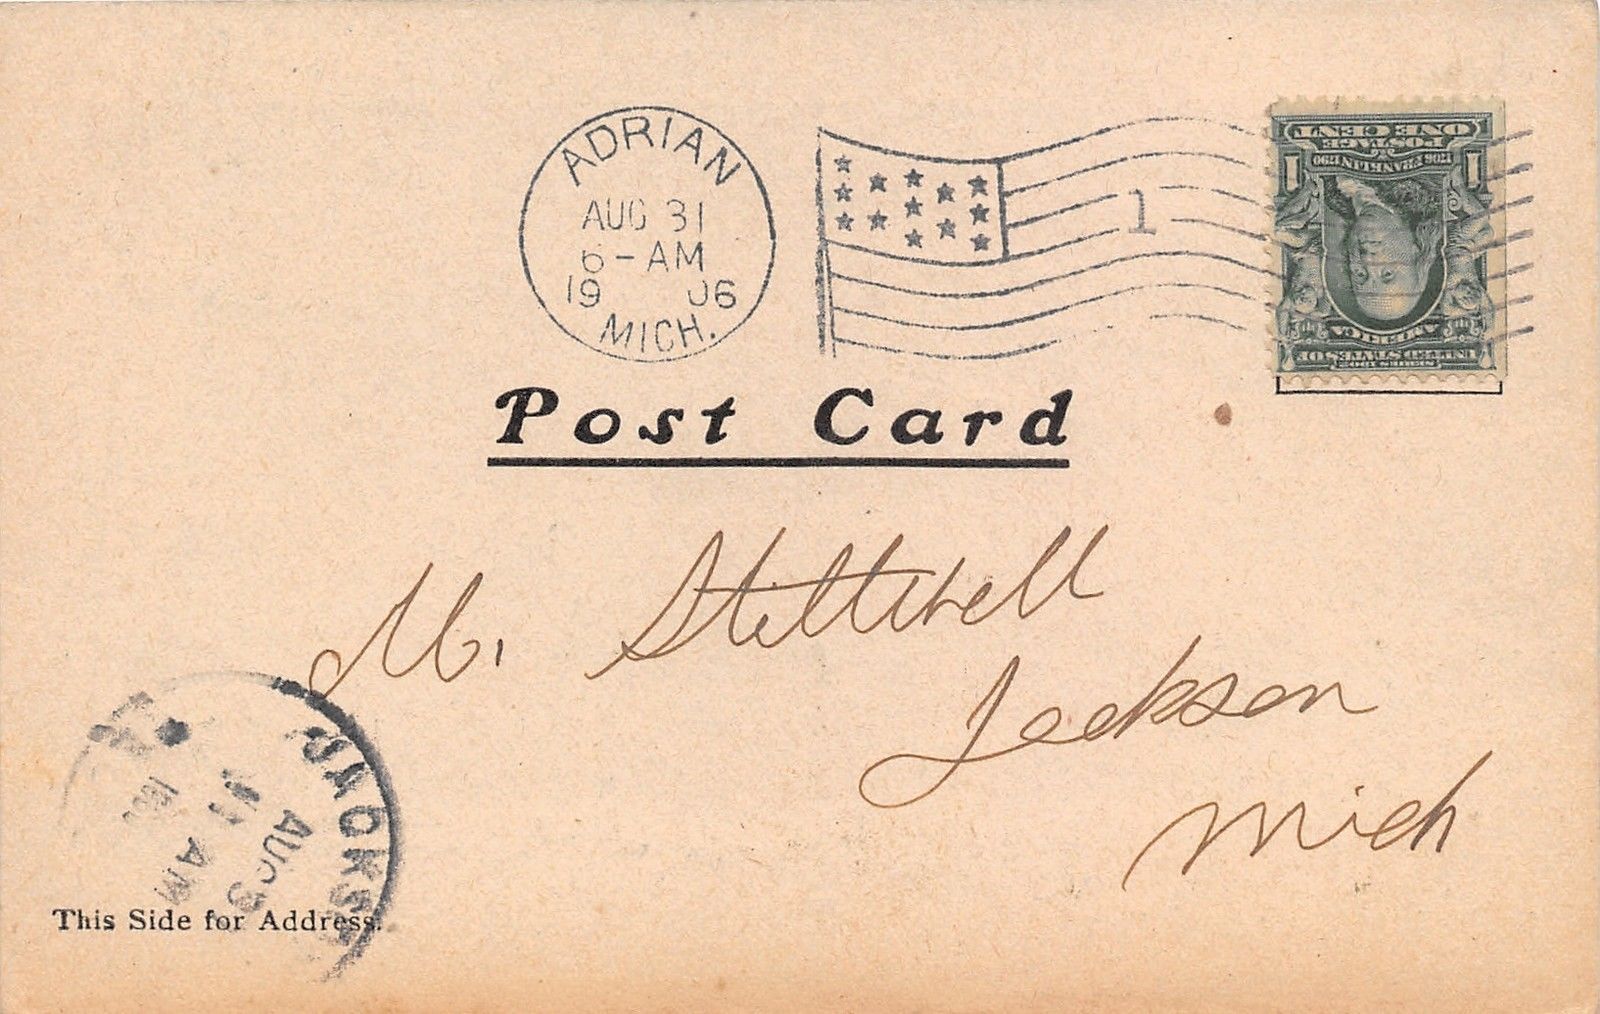 ADRIAN
AUG 31
6-AM
19 06
MICH.
1
ONE CENT
POSTAGE
1706 FRANKLIN 1790
1 1
AMERICA
UNITED STATES OF
SERIES 1902
Post Card
M. Stillwell
Jackson
Mich
JACKS
AUG 3
11 AM
This Side for Address.